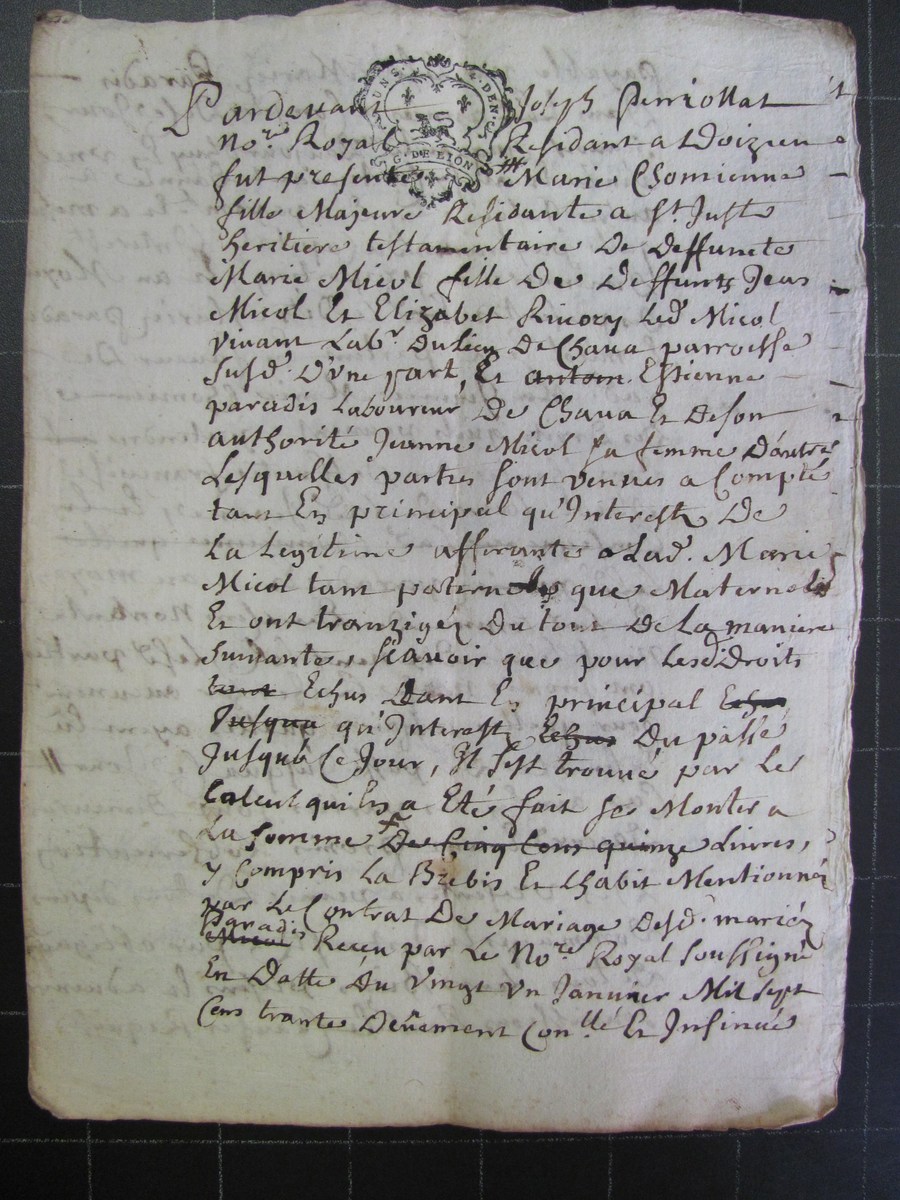 Pardevant Joseph Perriollat
No.re Royal Residant a Doizieu
fut presente Marie Chomienne
fille Majeure Residante a St. Juste
heritiere testamentaire De Deffuncte
Marie Micol fille De Deffunts Jean
Micol Et Elizabet Rivory led. Micol
vivant Lab.r Du lieu De Chava parroisse
susd. D'vne part, Et antoin Estienne
paradis Laboureur De Chava Et De son
authorité Jeanne Micol sa femme D'autre
Lesquelles parties sont venues a Compte
tant En principal qu'Interest De
La Legitime afferante a Lad. Marie
Micol tant paternels que Maternels
Et ont tranzigéz Du tout De La maniere
suivante, scavoir que pour Lesd. Droits
tant Echus tant En principal Echu
Jusqua qu'Interest Echus Du passé
Jusqu'à Ce Jour, Il s'est trouvé par Le
Calcul qui En a Eté fait se Monter a
La somme De Cinq Cens quinze Livres,
y Compris La Brebis Et Lhabit Mentionnéz
par Le Contrat De Mariage Desd. mariéz
Paradis
Micol Receu par Le No.re Royal soussigné
En Datte Du vingt vn Janvier Mil sept
Cens trante Deüement Con.llé Et Insinué
G. DE LION